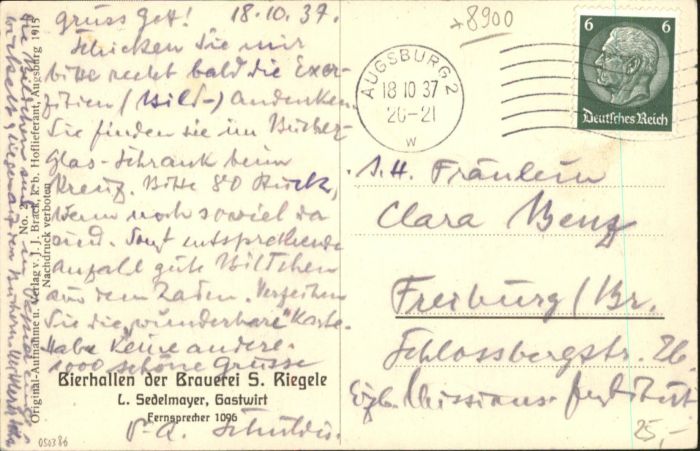 Grüss Gott! 18.10.37.
Schicken Sie mir
bitte recht bald die Exer-
zitien (Bild-) Andenken.
Sie finden sie im Bücher-
Glas-Schrank beim
Kreuz. Bitte 80 Stück,
wenn noch soviel da
sind. Sonst entsprechende
Anzahl gute Bildchen
aus dem Laden. Verzeihen
Sie die „wunderbare" Karte.
Habe keine andere.
1000 schöne Grüsse
Bierhallen der Brauerei S. Riegele
L. Sedelmayer, Gastwirt
Fernsprecher 1096
P. A.
050386
No. 2
Original-Aufnahme u. Verlag v. J. J. Brack, k. b. Hoflieferant, Augsburg 1915
Nachdruck verboten
*8900
AUGSBURG 2
18 10 37
20-21
w
6 6
Deutsches Reich
S. H. Fräulein
Clara Benz
Freiburg/Br.
Schlossbergstr. 26
Missions-Institut
25,-